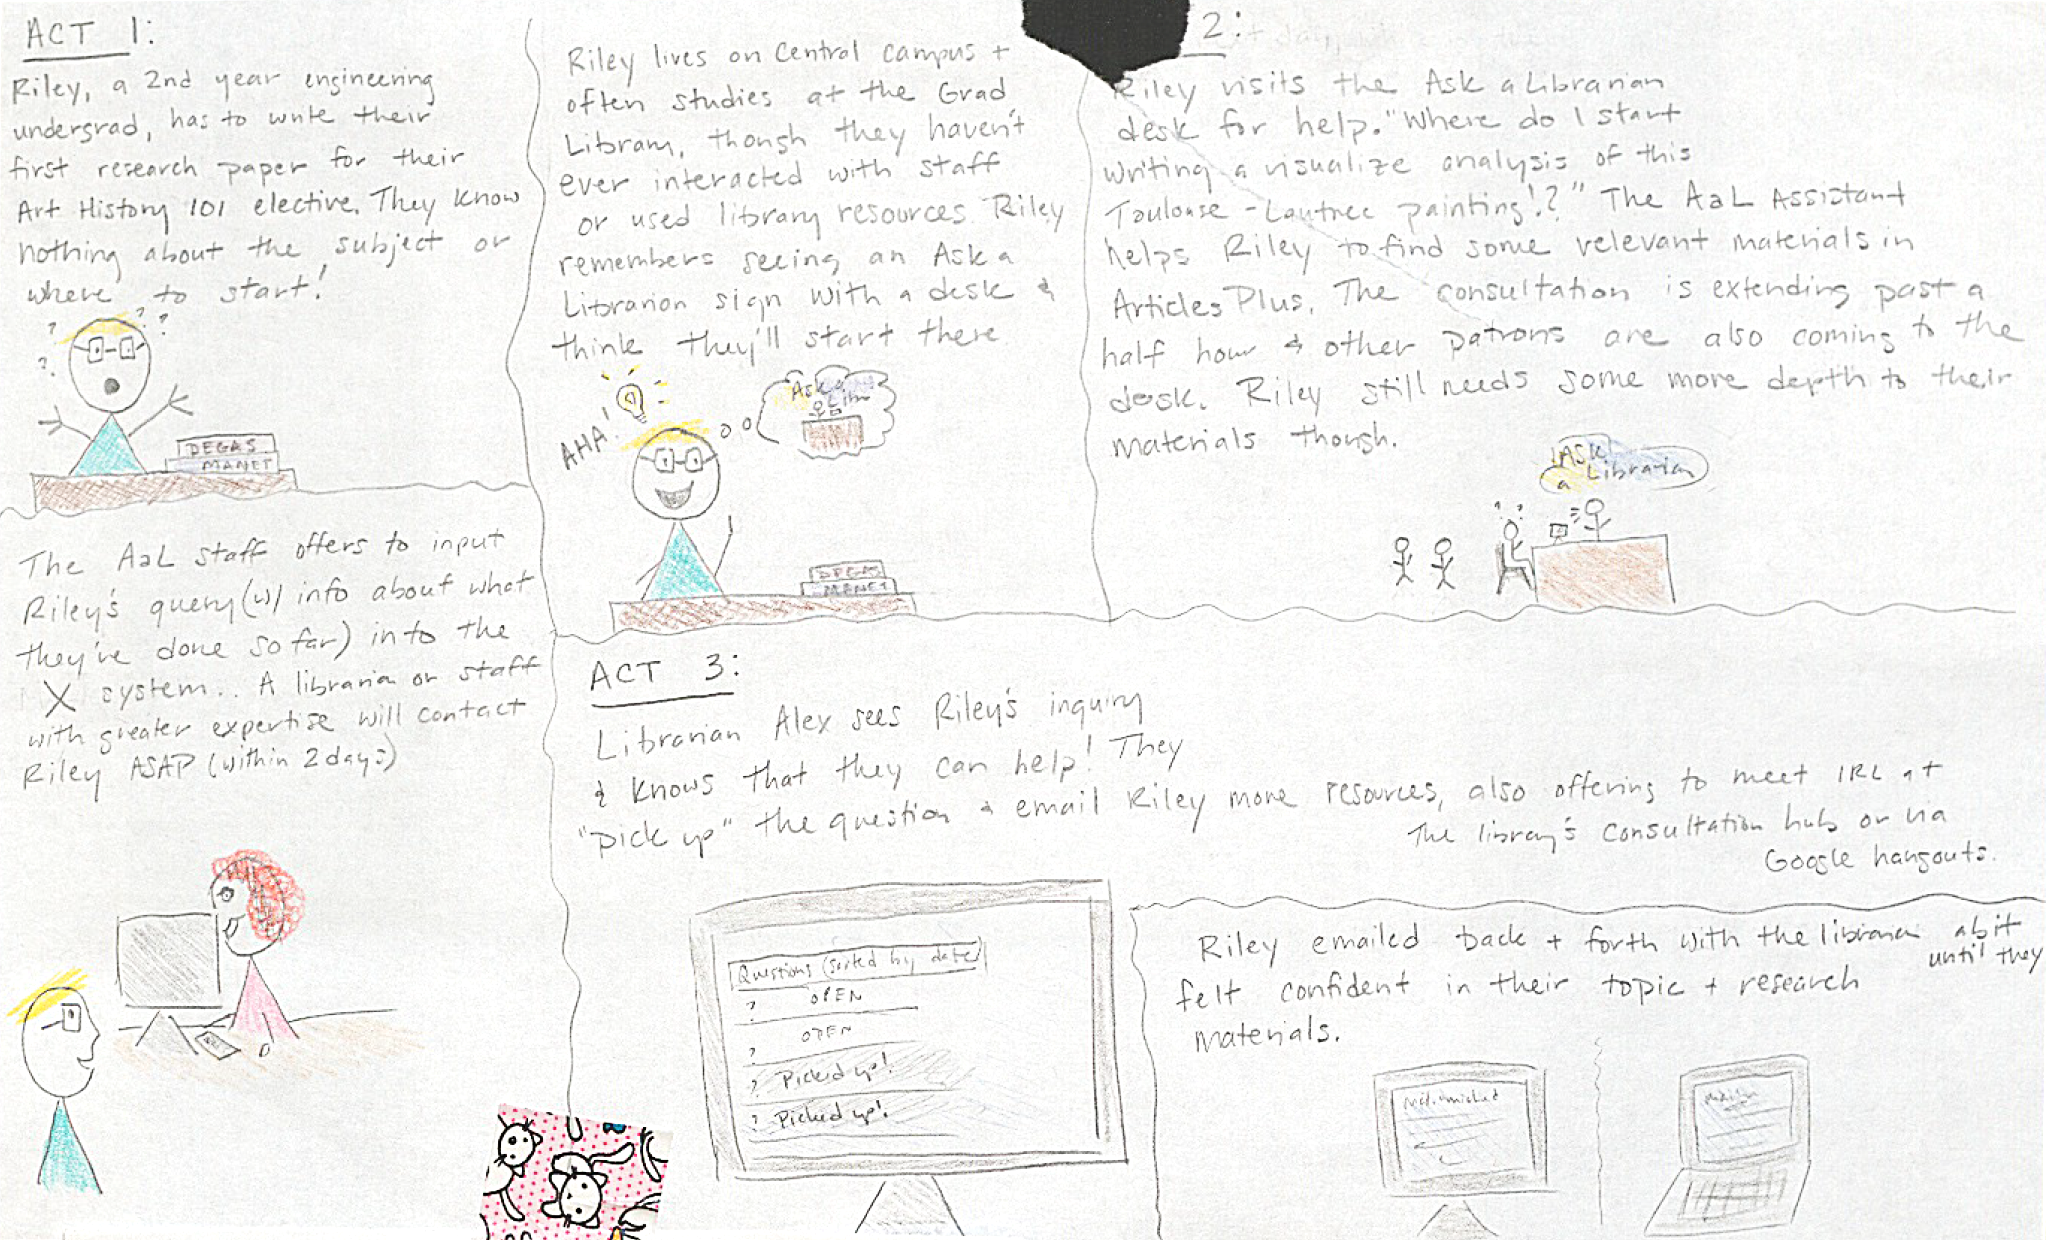 ACT 1:
Riley, a 2nd year engineering
undergrad, has to write their
first research paper for their
Art History 101 elective. They know
nothing about the subject or
where to start!
? ? ? ? ? ?
DEGAS
MANET
Riley lives on Central campus +
often studies at the Grad
Library, though they haven't
ever interacted with staff
or used library resources. Riley
remembers seeing an Ask a
Librarian sign with a desk &
think they'll start there.
AHA!
Ask a
Libr
DEGAS
MANET
2:
Riley visits the Ask a Librarian
desk for help. "Where do I start
writing a visualize analysis of this
Toulouse-Lautrec painting!?" The AaL Assistant
helps Riley to find some relevant materials in
Articles Plus. The consultation is extending past a
half hour & other patrons are also coming to the
desk. Riley still needs some more depth to their
materials though.
Ask
a Librarian
The AaL staff offers to input
Riley's query (w/ info about what
they've done so far) into the
X system.. A librarian or staff
with greater expertise will contact
Riley ASAP (within 2 days)
ACT 3:
Librarian Alex sees Riley's inquiry
& knows that they can help! They
"pick up" the question & email Riley more resources, also offering to meet IRL at
The library's consultation hub or via
Google hangouts.
Questions (sorted by date)
? OPEN
? OPEN
? Picked up!
? Picked up!
Riley emailed back + forth with the librarian a bit
until they
felt confident in their topic + research
materials.